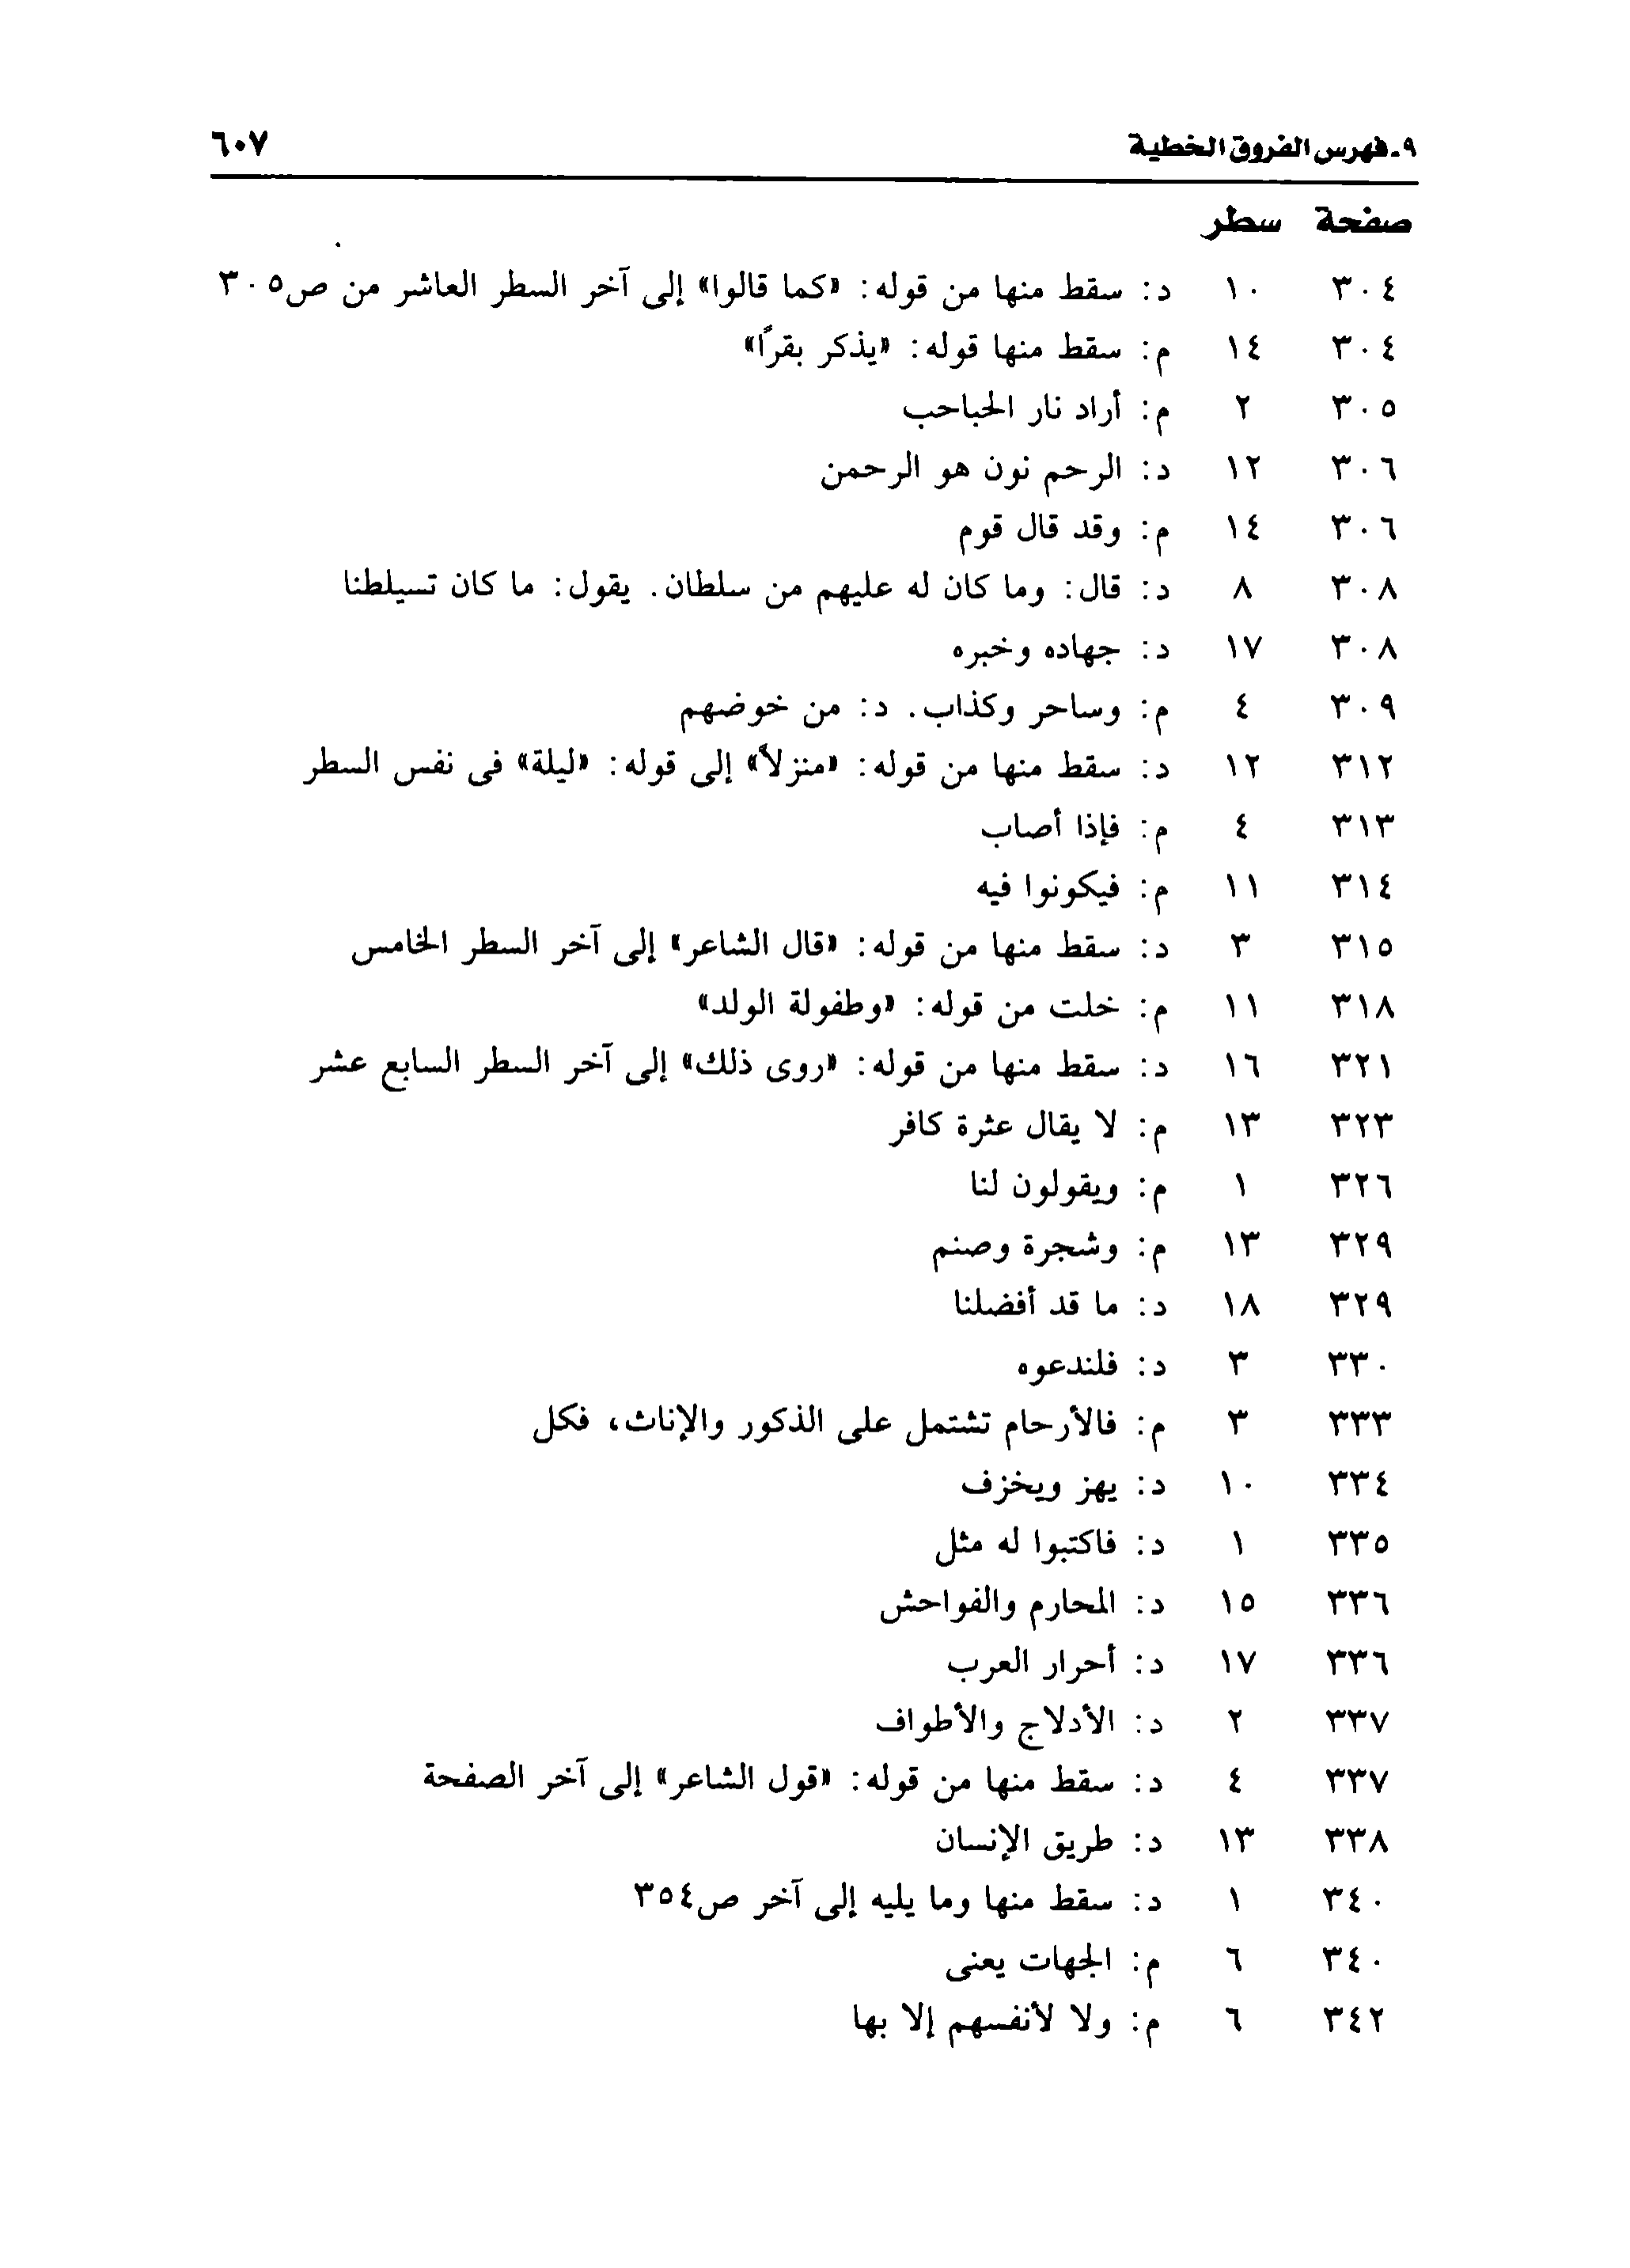 ٩ـ فهرس الفروق الخطية ٦٠٧
صفحة سطر
٣٠٤ ١٠ د: سقط منها من قوله: «كما قالوا» إلى آخر السطر العاشر من ص٣٠٥
٣٠٤ ١٤ م: سقط منها قوله: «يذكر بقرًا»
٣٠٥ ٢ م: أراد نار الحباحب
٣٠٦ ١٢ د: الرحم نون هو الرحمن
٣٠٦ ١٤ م: وقد قال قوم
٣٠٨ ٨ د: قال: وما كان له عليهم من سلطان. يقول: ما كان تسيلطنا
٣٠٨ ١٧ د: جهاده وخبره
٣٠٩ ٤ م: وساحر وكذاب. د: من خوضهم
٣١٢ ١٢ د: سقط منها من قوله: «منزلاً» إلى قوله: «ليلة» فى نفس السطر
٣١٣ ٤ م: فإذا أصاب
٣١٤ ١١ م: فيكونوا فيه
٣١٥ ٣ د: سقط منها من قوله: «قال الشاعر» إلى آخر السطر الخامس
٣١٨ ١١ م: خلت من قوله: «وطفولة الولد»
٣٢١ ١٦ د: سقط منها من قوله: «روى ذلك» إلى آخر السطر السابع عشر
٣٢٣ ١٣ م: لا يقال عثرة كافر
٣٢٦ ١ م: ويقولون لنا
٣٢٩ ١٣ م: وشجرة وصنم
٣٢٩ ١٨ د: ما قد أفضلنا
٣٣٠ ٣ د: فلندعوه
٣٣٣ ٣ م: فالأرحام تشتمل على الذكور والإناث، فكل
٣٣٤ ١٠ د: يهز ويخزف
٣٣٥ ١ د: فاكتبوا له مثل
٣٣٦ ١٥ د: المحارم والفواحش
٣٣٦ ١٧ د: أحرار العرب
٣٣٧ ٢ د: الأدلاج والأطواف
٣٣٧ ٤ د: سقط منها من قوله: «قول الشاعر» إلى آخر الصفحة
٣٣٨ ١٣ د: طريق الإنسان
٣٤٠ ١ د: سقط منها وما يليه إلى آخر ص٣٥٤
٣٤٠ ٦ م: الجهات يعنى
٣٤٢ ٦ م: ولا لأنفسهم إلا بها